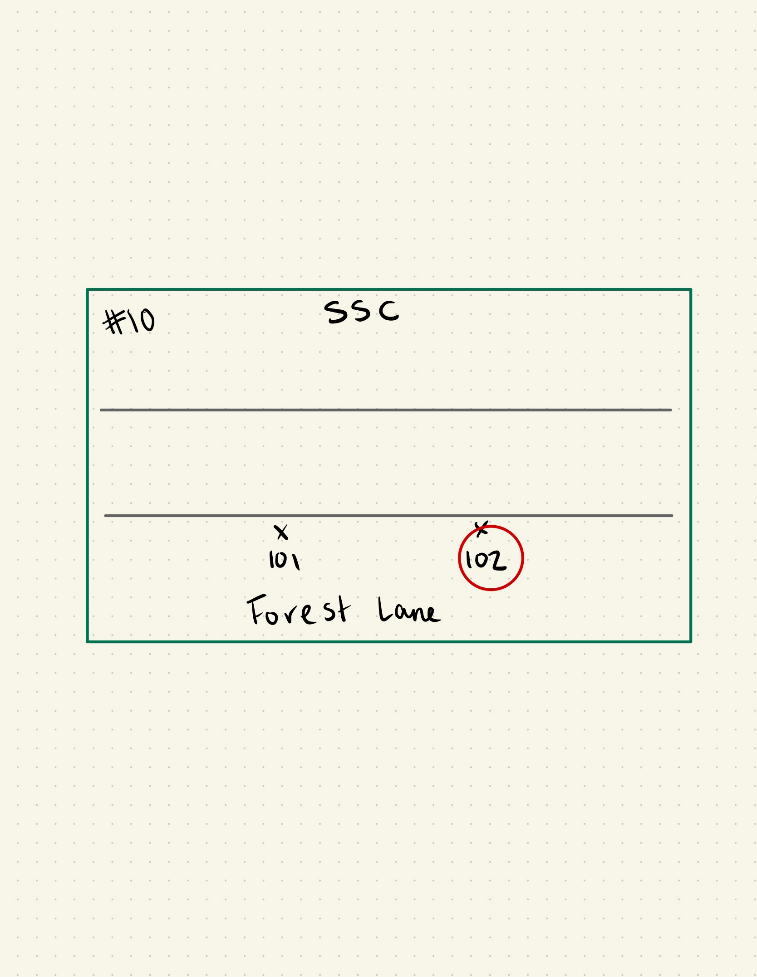 #10 SSC
x x
101 102
Forest Lane